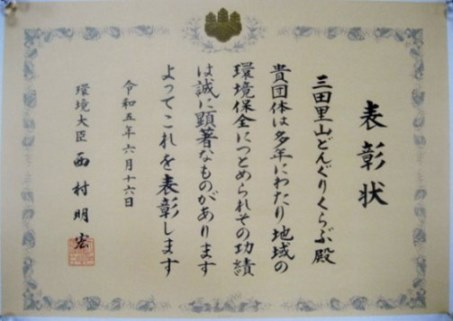 表彰状
三田里山どんぐりくらぶ殿
貴団体は多年にわたり地域の
環境保全につとめられその功績
は誠に顕著なものがあります
よってこれを表彰します
令和五年六月十六日
環境大臣 西村明宏